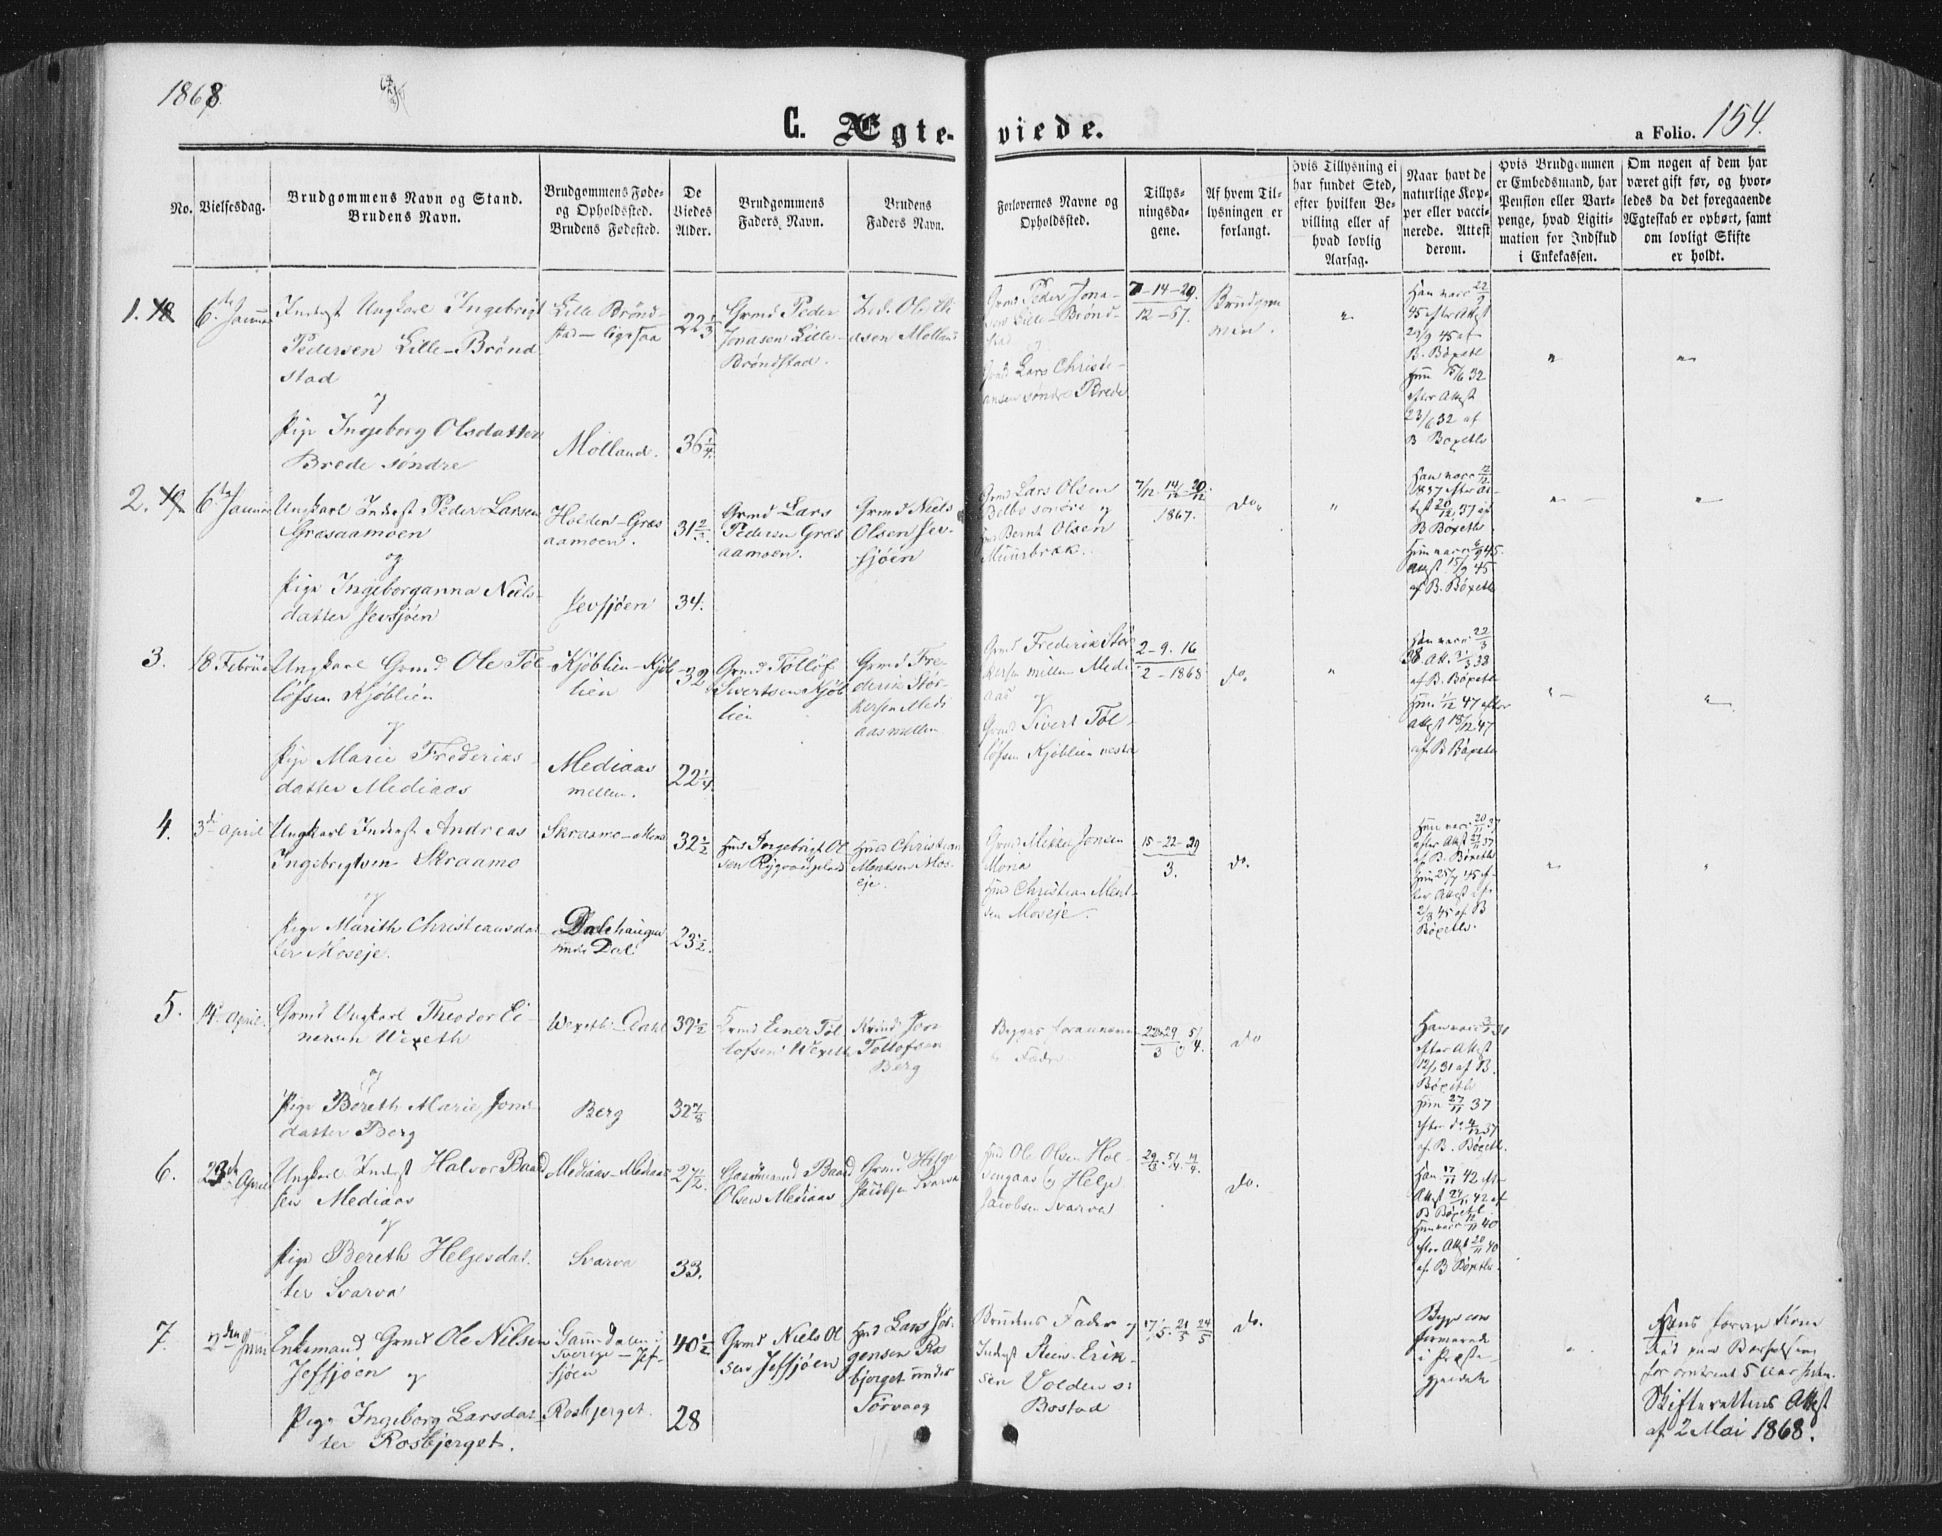 1868
C. Ægte-
viede.
a Folio. 154.
No.
Vielsesdag.
Brudgommens Navn og Stand.
Brudens Navn.
Brudgommens Føde-
og Opholdssted.
Brudens Fødested.
De
Viedes
Alder.
Brudgommens
Faders Navn.
Brudens
Faders Navn.
Forlovernes Navne og
Opholdssted.
Tillys-
ningsda-
gene.
Af hvem Til-
lysningen er
forlangt.
Hvis Tillysning ei
har fundet Sted,
efter hvilken Be-
villing eller af
hvad lovlig
Aarsag.
Naar havt de
naturlige Kop-
per eller vacci-
nerede. Attest
derom.
Hvis Brudgommen
er Embedsmand, har
Pension eller Vart-
penge, hvad Ligiti-
mation for Indskud
i Enkekassen.
Om nogen af dem har
været gift før, og hvor-
ledes da det foregaaende
Ægteskab er ophørt, samt
om lovligt Skifte
er holdt.
1.
6te Januar
Inderst Ungkarl Ingebrigt
Pedersen Lille-Brønd
stad
og
Pige Ingeborg Olsdatter
Brede søndre
Lille Brønd-
stad - ligesaa
Molland.
22 1/3
36 1/4
Grmd Peder
Jonasen Lille-
Brøndstad.
Molland
Grmd Peder Jona-
sen Lille-Brønd-
stad
og
Grmd Lars Christi-
ansen søndre Brede
7-14-29.
12-67.
Brudgom
men.
"
Han vacc 22/9
45 efter Attest
29/9 45 af
B. Bøxeth
Hun 15/6 32
efter Attest
23/6 32 af
B Bøxeth
"
"
2.
6te Januar
Ungkarl Inderst Peder Larsen
Græsaamoen
og
Pige Ingeborganna Niels-
datter Jevsjøen
Holden-Græs
aamoen.
Jevsjøen
31 2/3
34.
Grmd Lars
Pedersen Græs
aamoen.
Grmd Niels
Olsen Jev-
sjøen
Grmd Lars Olsen
Belbo søndre og
Bernt Olsen
7/12 14/12 20/12
1867.
Do.
"
Han vacc 12/12
1837 efter At-
test 20/12 37 af
B Bøxeth.
Hun vacc 6/9 45.
Attest 15/9 45
af B. Bøxeth
"
"
3.
18 Februar
Ungkarl Grmd Ole Tol-
lofsen Kjøblien
og
Pige Marie Frederiks-
datter Mediaas
Kjøblien-Kjøb
lien
Mediaas
mellem.
32
22 1/4
Grmd Tollof
Sivertsen Kjøb
lien
Grmd Fre-
derik Stør-
kersen Medi
aas mellem
Grmd Frederik Stør
kersen mellem Medi
aas og
Grmd Sivert Tol-
lofsen Kjøblien vestre
2-9-16
2-1868
Do.
"
Han vacc 22/3
38 Att. 31/3 38
af B. Bøxeth
Hun 1/12 47 efter
Attest 18/12 47
af B Bøxeth
"
"
4.
3de April
Ungkarl Inderst Andreas
Ingebrigtsen Skraamo
og
Pige Marith Christiansdat
ter Moseje.
Skraamo-Mona
Dalehaugen
under Dal
32 1/2
23 1/2.
Husd Ingebrigt Ol
sen
Husd Christian
Mentsen Mos-
eje.
Grmd Mikkel Jonsen
Mona
Husd Christian Ment-
sen Moseje.
15-22-29
3.
do.
Han vacc 20/11 37
efter Att 27/11 37
af B. Bøxeth
Hun 25/7 45 ef-
ter Attest af
2/8 45 af B
Bøxeth.
"
"
5.
14de April
Grmd Ungkarl Theodor Ei-
nersen Wexeth
og
Pige Bereth Marie Jons-
datter Berg
Wexeth-Dahl
Berg
37 1/2
32 7/8
Grmd Einer Tol
lofsen Wexeth
Jon
Tollofsen
Berg
Begges foranævn-
te Fædre
22 29 5/4.
3
do
Han vacc
efter Attest
12/1 31 af B.
Bøxeth
Hun 27/11 37
efter do 4/12 37
af B. Bøxeth
6.
23de April
Ungkarl Inderst Halvor Baard
sen Mediaas
og
Pige Bereth Helgesdat-
ter Svarva
Mediaas-Mediaas
Svarva
27 1/2.
33.
Gaardmand Baard
Olsen Mediaas
Grmd Helge
Jacobsen Svarva
Husd Ole Olsen Hol-
vengaas og Helge
Jacobsen Svarva
29/3. 5/4.
Do.
Han 17/11 42 eft-
Attest 24/11 42 af
B Bøxeth
Hun vacc 12/11 40
efter Attest 20/11 40
af B Bøxeth.
7.
Juni
Enkemand Grmd Ole Nilsen
Jefsjøen og
Pige Ingeborg Larsdat-
ter Rosbjerget.
Gaundalen i
Sverige - Jef-
sjøen
Rosbjerget.
40 1/2
28
Grmd Niels Ol
sen Jefsjøen
Husd Lars Jør-
gensen Ros
bjerget under
Torvaag
Brudens Fader og
Inderst Steen Erik-
sen Volden s:
Bostad
17/5. 21/5 24/5
Do.
Begge con
firmerede
i Præste-
gjeldet
"
Hans forrige Kone
død
for omtrent 5 Aar siden.
Skifterettens Attest
af 2 Mai 1868.